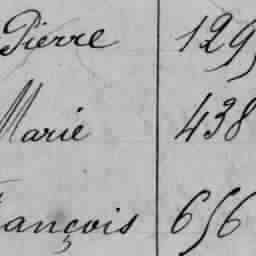 Pierre 129
Marie 438
ançois 656